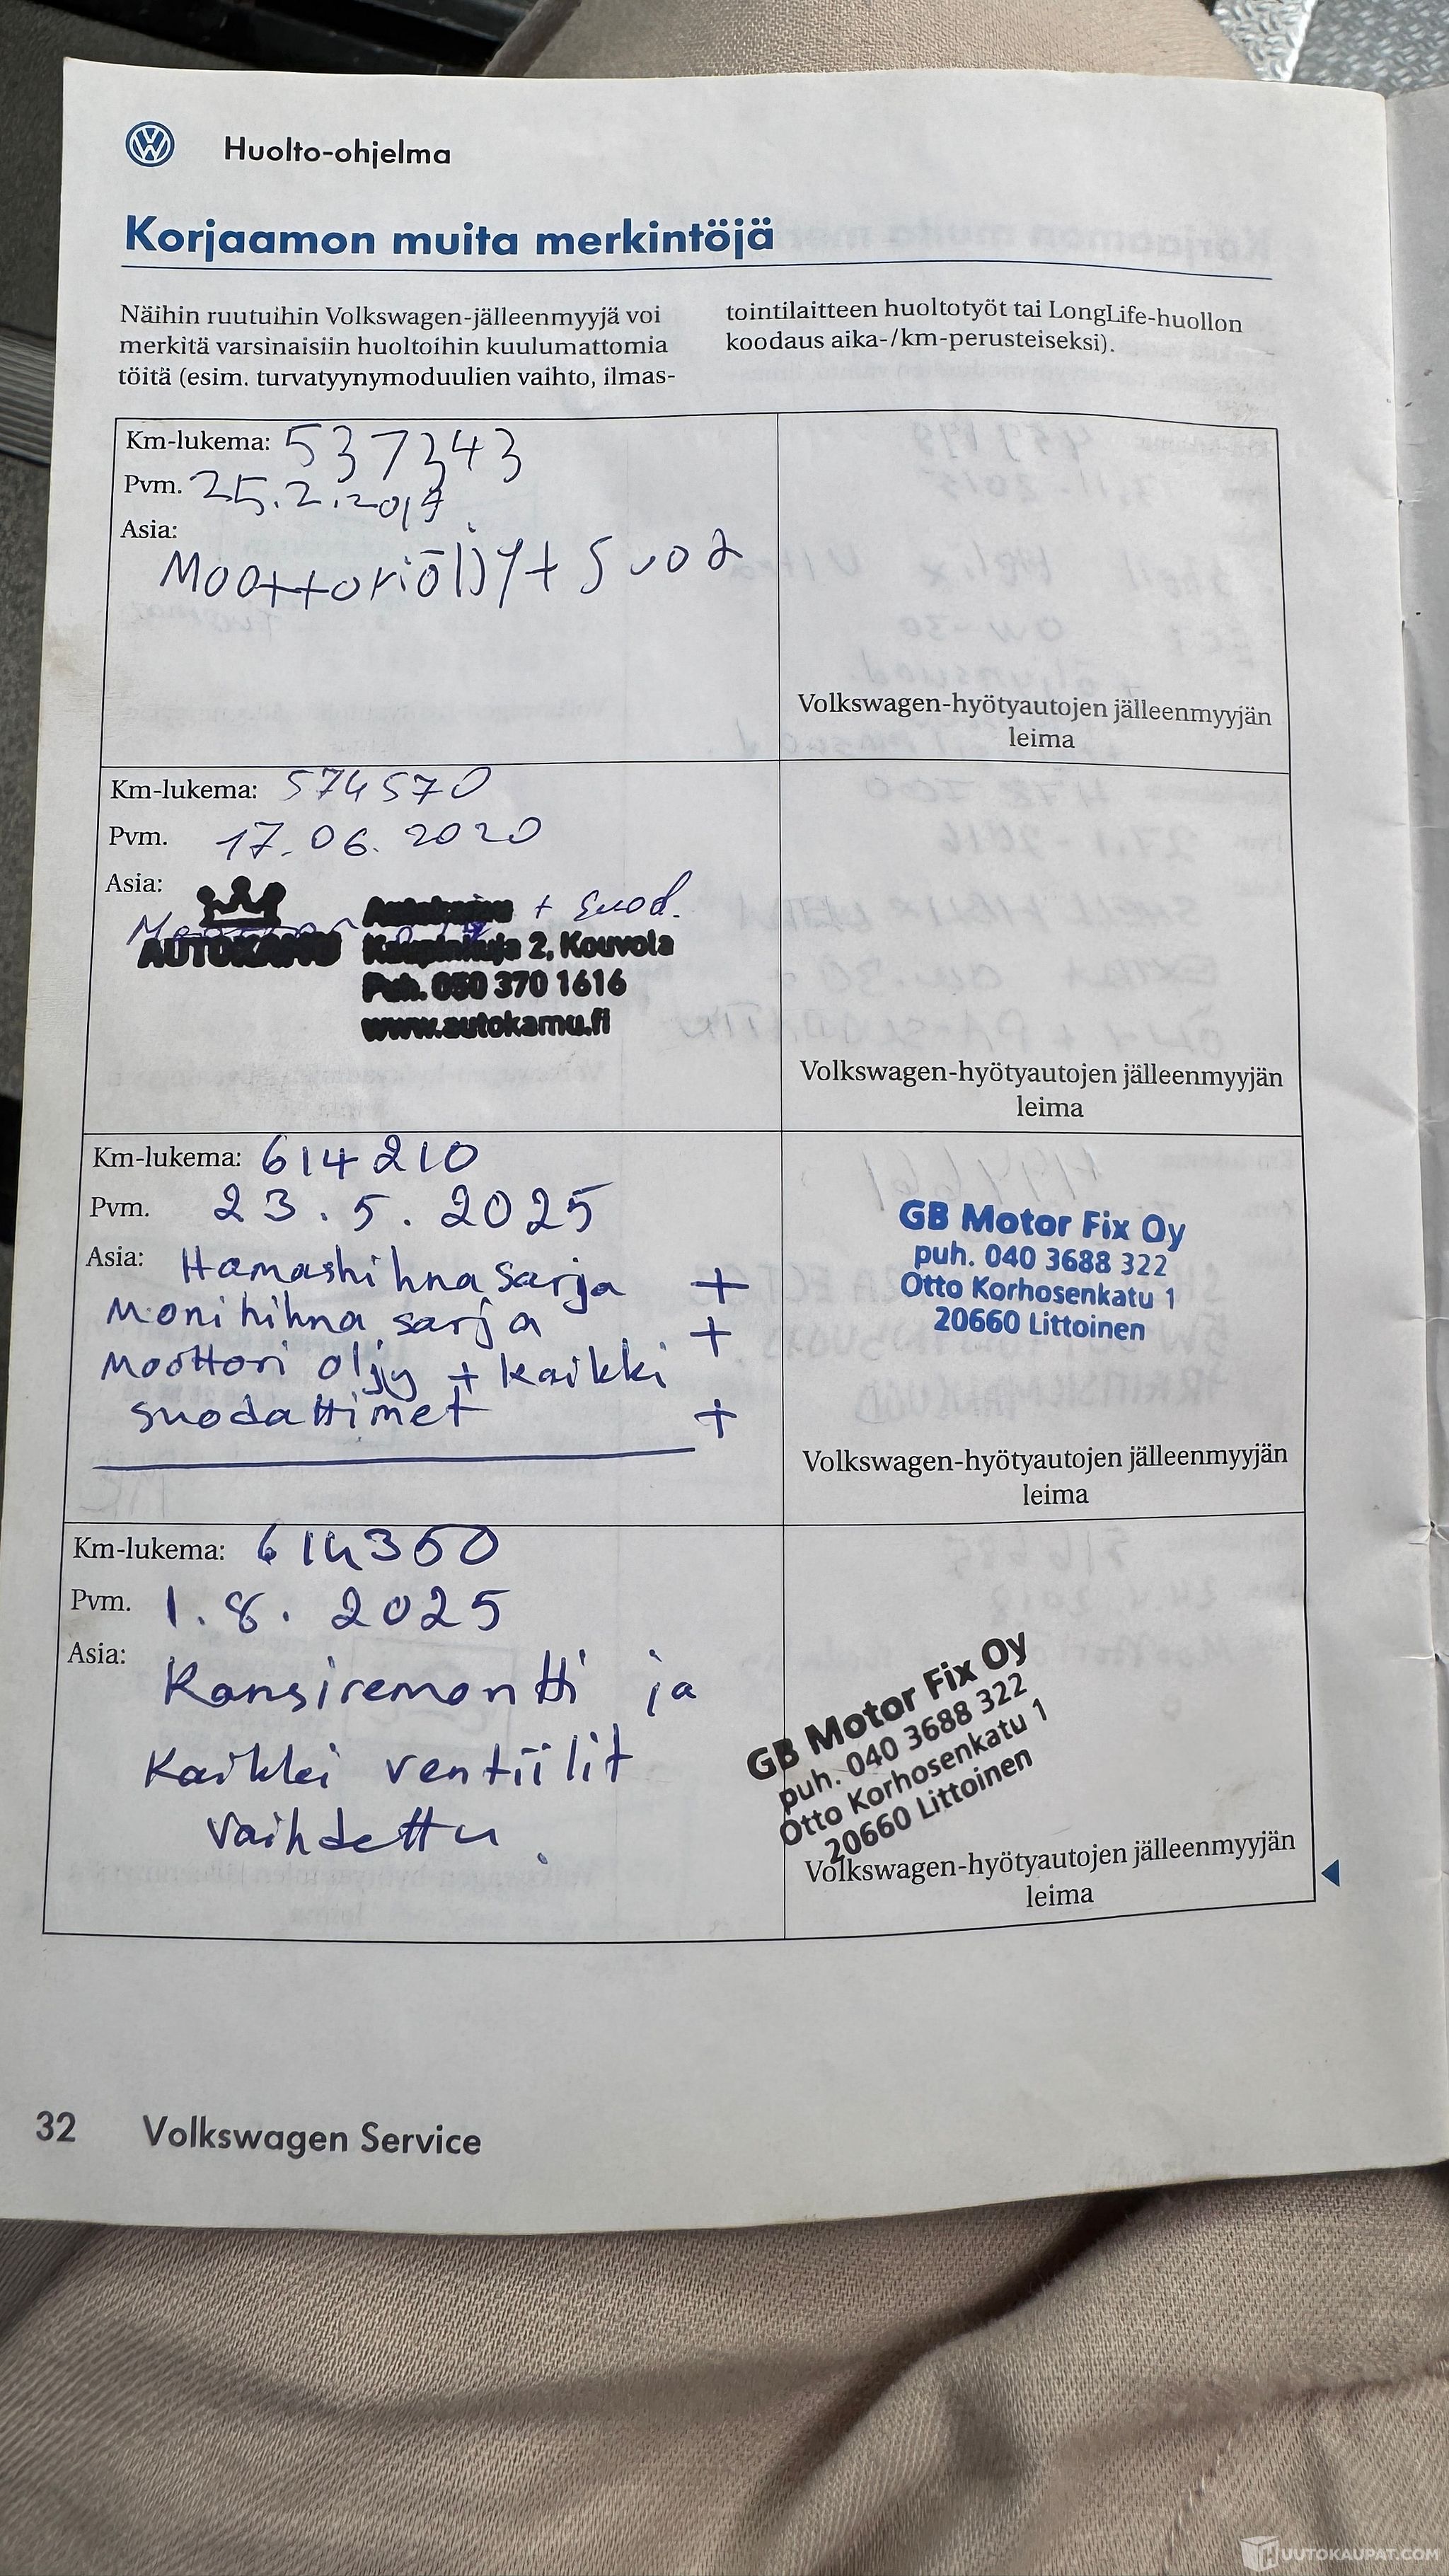 Huolto-ohjelma
Korjaamon muita merkintöjä
Näihin ruutuihin Volkswagen-jälleenmyyjä voi
merkitä varsinaisiin huoltoihin kuulumattomia
töitä (esim. turvatyynymoduulien vaihto, ilmas-
tointilaitteen huoltotyöt tai LongLife-huollon
koodaus aika-/km-perusteiseksi).
Km-lukema: 537343
Pvm. 25.2.2019
Asia:
Moottoriöljy + Suod
Volkswagen-hyötyautojen jälleenmyyjän
leima
Km-lukema: 574570
Pvm. 17.06.2020
Asia:
+ suod.
AUTOKAMU
Kaupinkuja 2, Kouvola
Puh. 050 370 1616
www.autokamu.fi
Volkswagen-hyötyautojen jälleenmyyjän
leima
Km-lukema: 614210
Pvm. 23.5.2025
Asia: Hamashihna sarja +
Monihihna sarja +
Moottori oljy + kaikki
suodattimet +
GB Motor Fix Oy
puh. 040 3688 322
Otto Korhosenkatu 1
20660 Littoinen
Volkswagen-hyötyautojen jälleenmyyjän
leima
Km-lukema: 614350
Pvm. 1.8.2025
Asia:
Kansiremontti ja
Kaikki ventiilit
vaihdettu.
GB Motor Fix Oy
puh. 040 3688 322
Otto Korhosenkatu 1
20660 Littoinen
Volkswagen-hyötyautojen jälleenmyyjän
leima
32 Volkswagen Service
HUUTOKAUPAT.COM